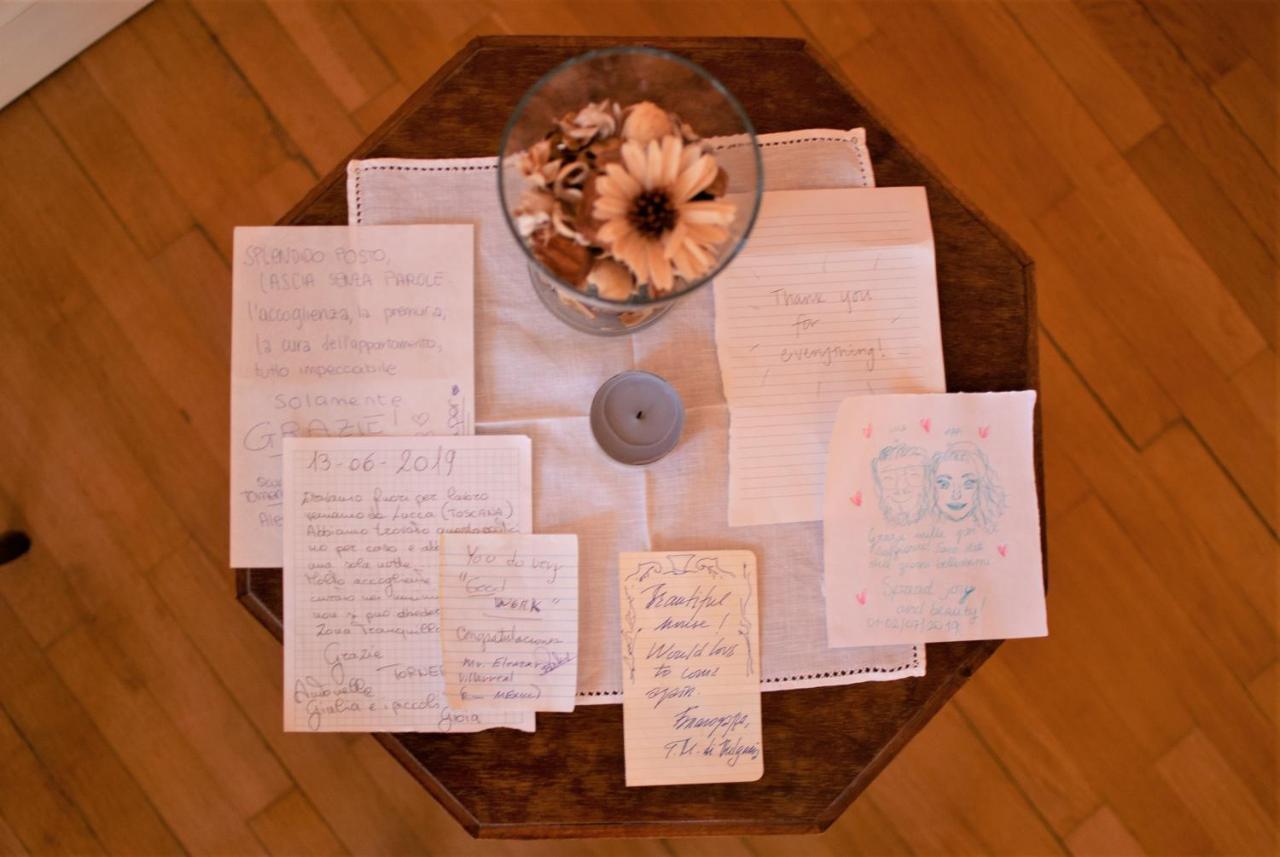 SPLENDIDO POSTO,
LASCIA SENZA PAROLE.
l'accoglienza, la premura,
la cura dell'appartamento,
tutto impeccabile
solamente
GRAZIE!
13-06-2019
fuori per lavoro
veniamo da Lucca (TOSCANA)
Abbiamo trovato questo
no per caso e
una sola notte.
Molto accogliente
non si può
Zona Tranquilla
Grazie
TORNE
Antonella
Giulia e i piccoli
Gioia
You do very
"Good
WORK"
Congratulaciones
Mr. Eleazar
Villarreal
MEXICO)
Beautiful
house!
Would love
to come
again.
T.M.
Thank you
for
everything!
Grazie mille per
giorni bellissimi
Spread joy
and beauty!
01-02/07/2019